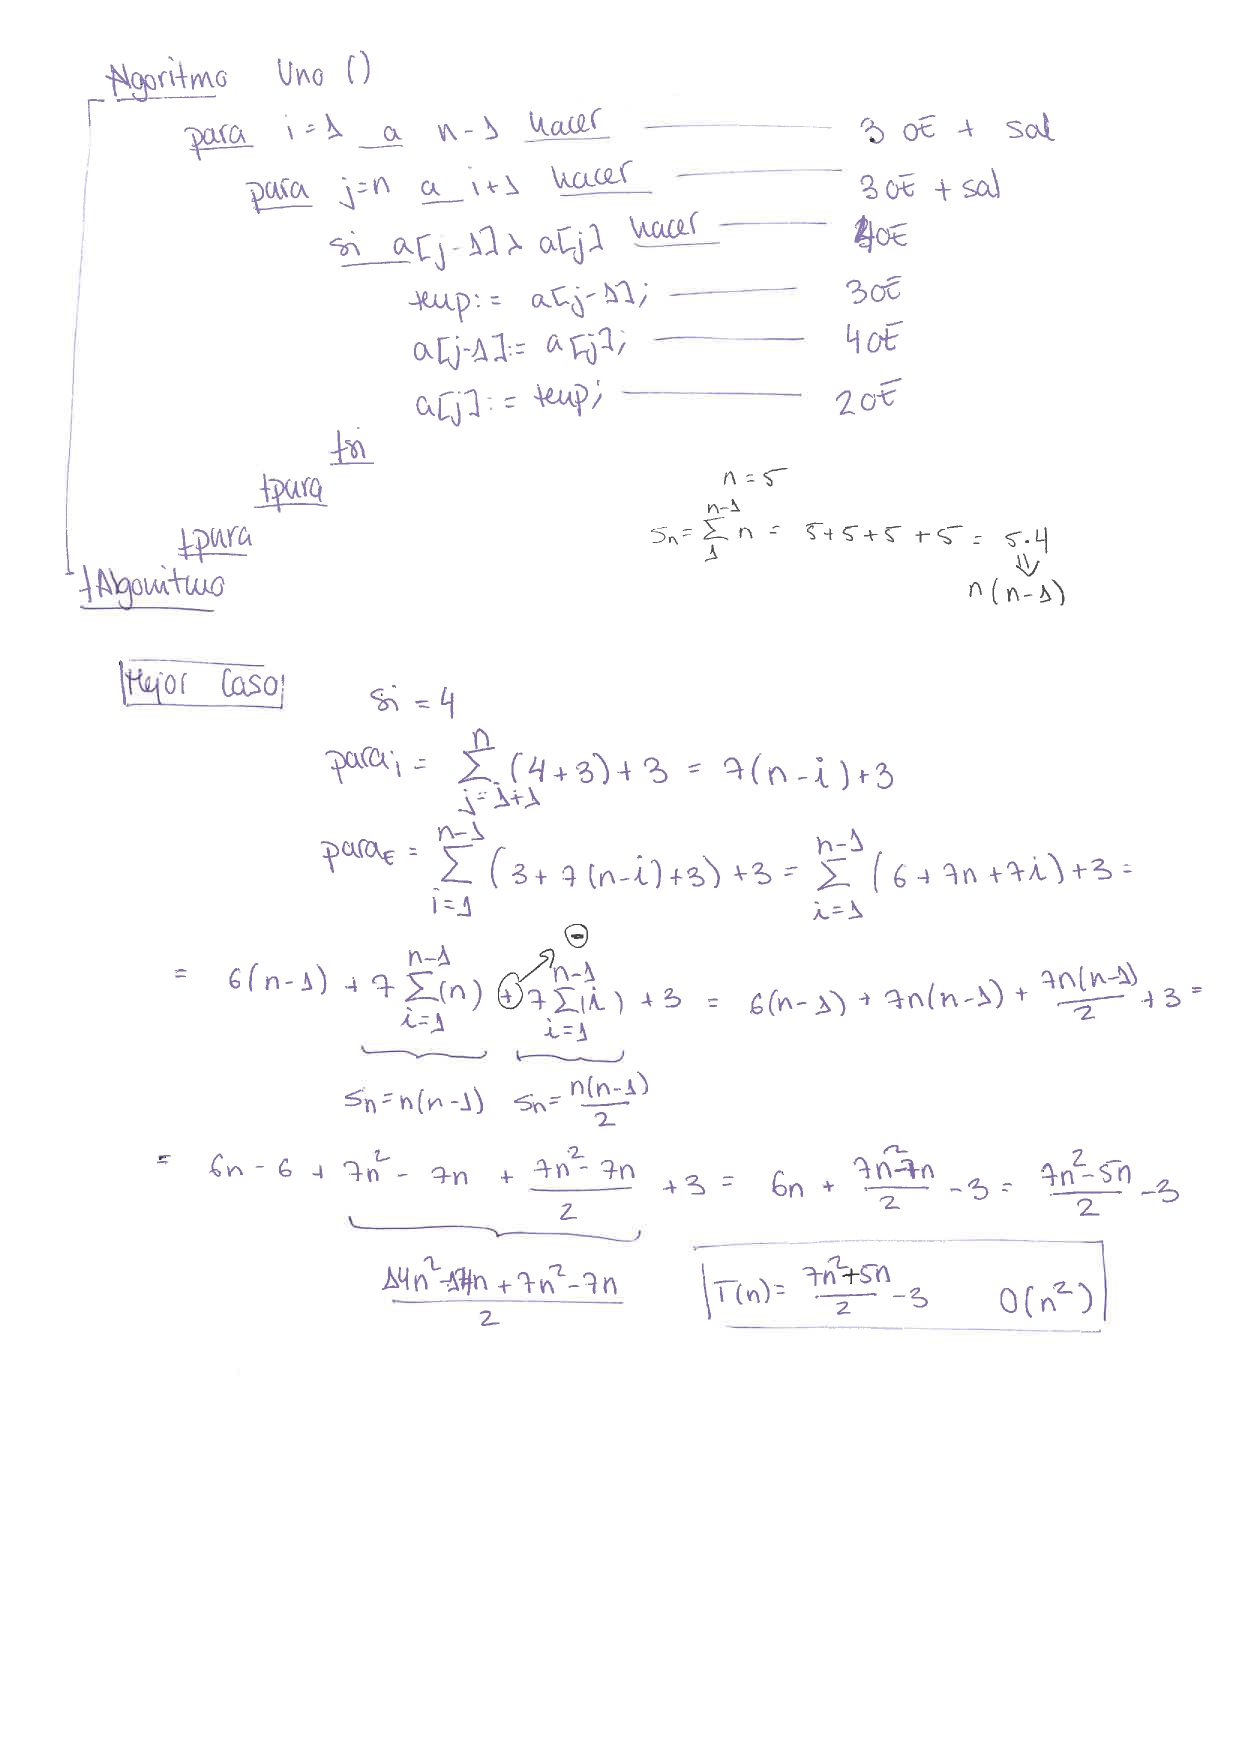 Algoritmo Uno ()
para i=1 a n-1 hacer 3 OE + sal
para j=n a i+1 hacer 3 OE + sal
si a[j-1]> a[j] hacer 4OE
temp:= a[j-1]; 3OE
a[j-1]:= a[j]; 4OE
a[j]:= temp; 2OE
fsi
fpara
fpara
fAlgoritmo
n=5
Sn = Σ_1^{n-1} n = 5+5+5+5 = 5·4
⇓
n(n-1)
Mejor Caso
si = 4
para_i = Σ_{j=i+1}^{n} (4+3)+3 = 7(n-i)+3
para_E = Σ_{i=1}^{n-1} (3+7(n-i)+3)+3 = Σ_{i=1}^{n-1} (6+7n+7i)+3 =
-
= 6(n-1) + 7 Σ_{i=1}^{n-1} (n) + 7 Σ_{i=1}^{n-1} (i) + 3 = 6(n-1) + 7n(n-1) + 7n(n-1)/2 + 3 =
Sn=n(n-1) Sn=n(n-1)/2
= 6n - 6 + 7n² - 7n + (7n² - 7n)/2 + 3 = 6n + (7n²-7n)/2 - 3 = (7n²-5n)/2 - 3
(14n²-14n + 7n²-7n)/2
T(n) = (7n²+5n)/2 - 3 O(n²)